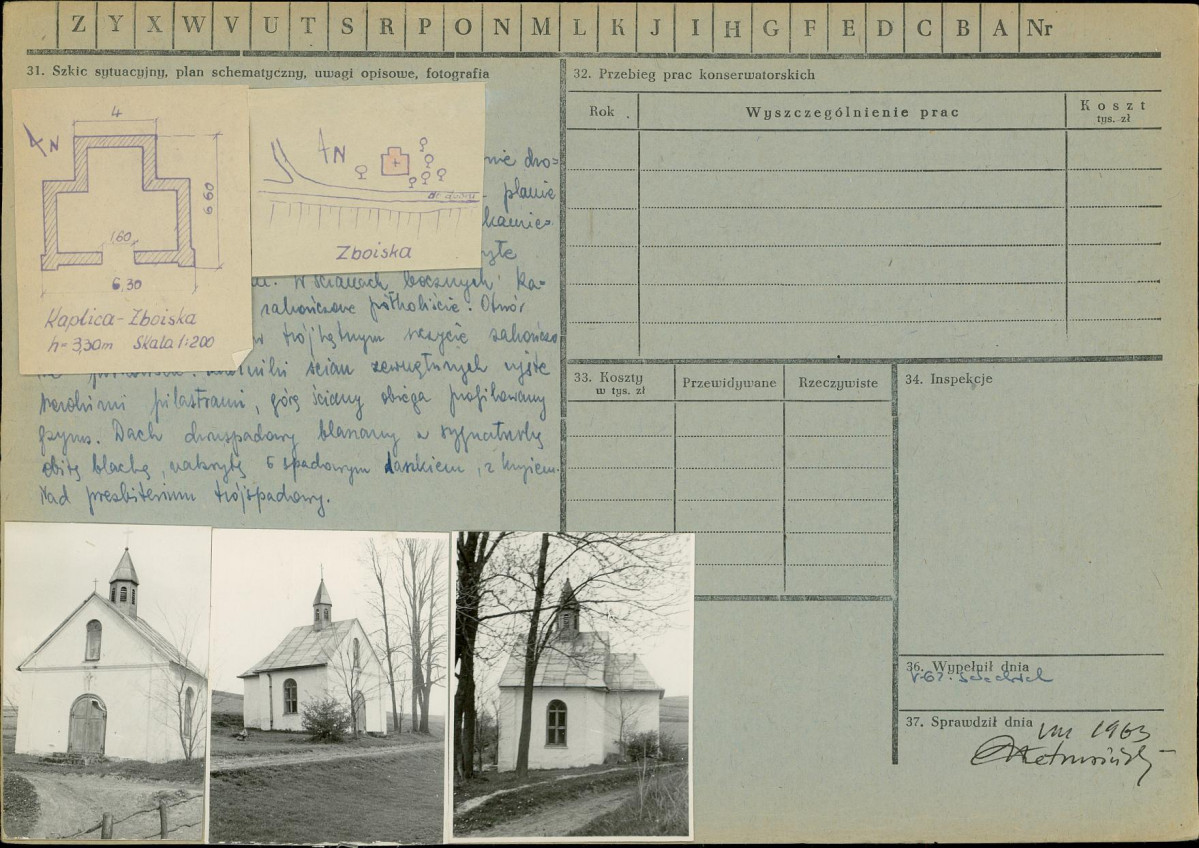 Z Y X W V U T S R P O N M L K J I H G F E D C B A Nr
31. Szkic sytuacyjny, plan schematyczny, uwagi opisowe, fotografia
4
N
6 60
1,60
6,30
Kaplica - Zboiska
h = 3,30m Skala 1:200
N
Zboiska
nie dro=
planie
kamie=
W ścianach bocznych
zakończone półkoliście. Otwór
w trójkątnym szczycie zakończo
ścian zewnętrznych
pilastrami, górę ściany obiega profilowany
gzyms. Dach dwuspadowy blaszany z sygnaturką
obitą blachą, nakrytą 6 spadowym daszkiem,
Nad presbiterium trójspadowy.
32. Przebieg prac konserwatorskich
Rok
Wyszczególnienie prac
Koszt
tys. zł
33. Koszty
w tys. zł
Przewidywane
Rzeczywiste
34. Inspekcje
36. Wypełnił dnia
37. Sprawdził dnia
1963